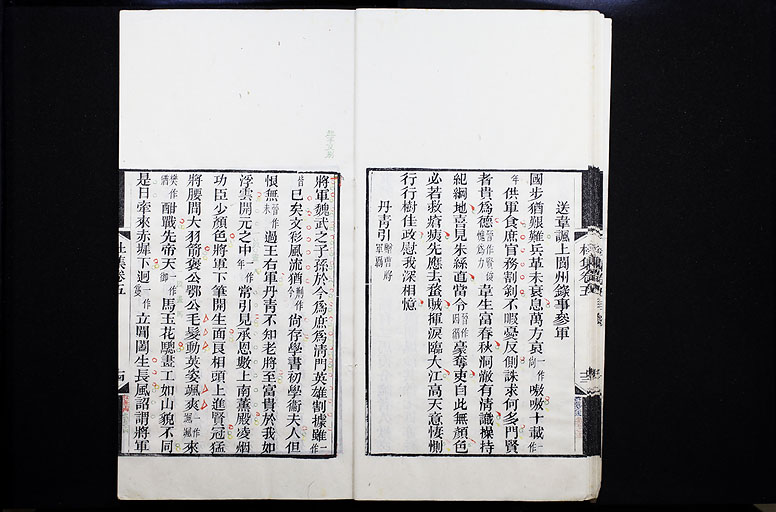 送韋諷上閬州錄事參軍
國步猶艱難兵革未衰息萬方哀一作尚嗷嗷十載一作
年供軍食庶官務割剝不暇憂反側誅求何多門賢
者貴為德韋生富春秋洞澈有清識操持
紀綱地喜見朱絲直當令豪奪吏自此無顏色
必若救瘡痍先應去蟊賊揮淚臨大江高天意悽惻
行行樹佳政慰我深相憶
丹青引贈曹將軍霸
將軍魏武之子孫於今為庶為清門英雄割據雖一作
皆已矣文彩風流猶尚存學書初學衞夫人但
恨無過王右軍丹青不知老將至富貴於我如
浮雲開元之中一作年常引見承恩數上南薰殿凌烟
功臣少顏色將軍下筆開生面良相頭上進賢冠猛
將腰間大羽箭褒公鄂公毛髮動英姿颯爽一作颯颯來
酣戰先帝天一作御馬玉花驄畫工如山貌不同
是日牽來赤墀下迥一作敻立閶闔生長風詔謂將軍